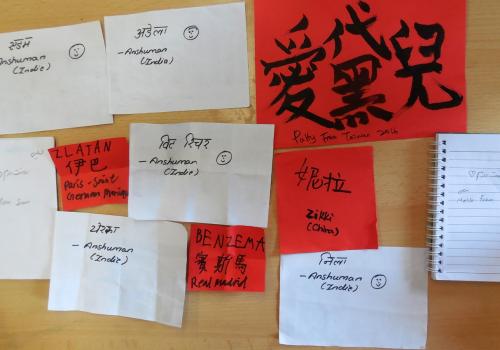 Anshuman
(India)
अडेला
- Anshuman
(India)
愛代黑兒
Patty From Taiwan 2016
ZLATAN
伊巴
Paris-Saint
German
विट रिचर
- Anshuman
(India)
妮拉
Zikki
(China)
- Anshuman
(India)
BENZEMA
賓斯馬
Real Madrid
निला
- Anshuman
(India)